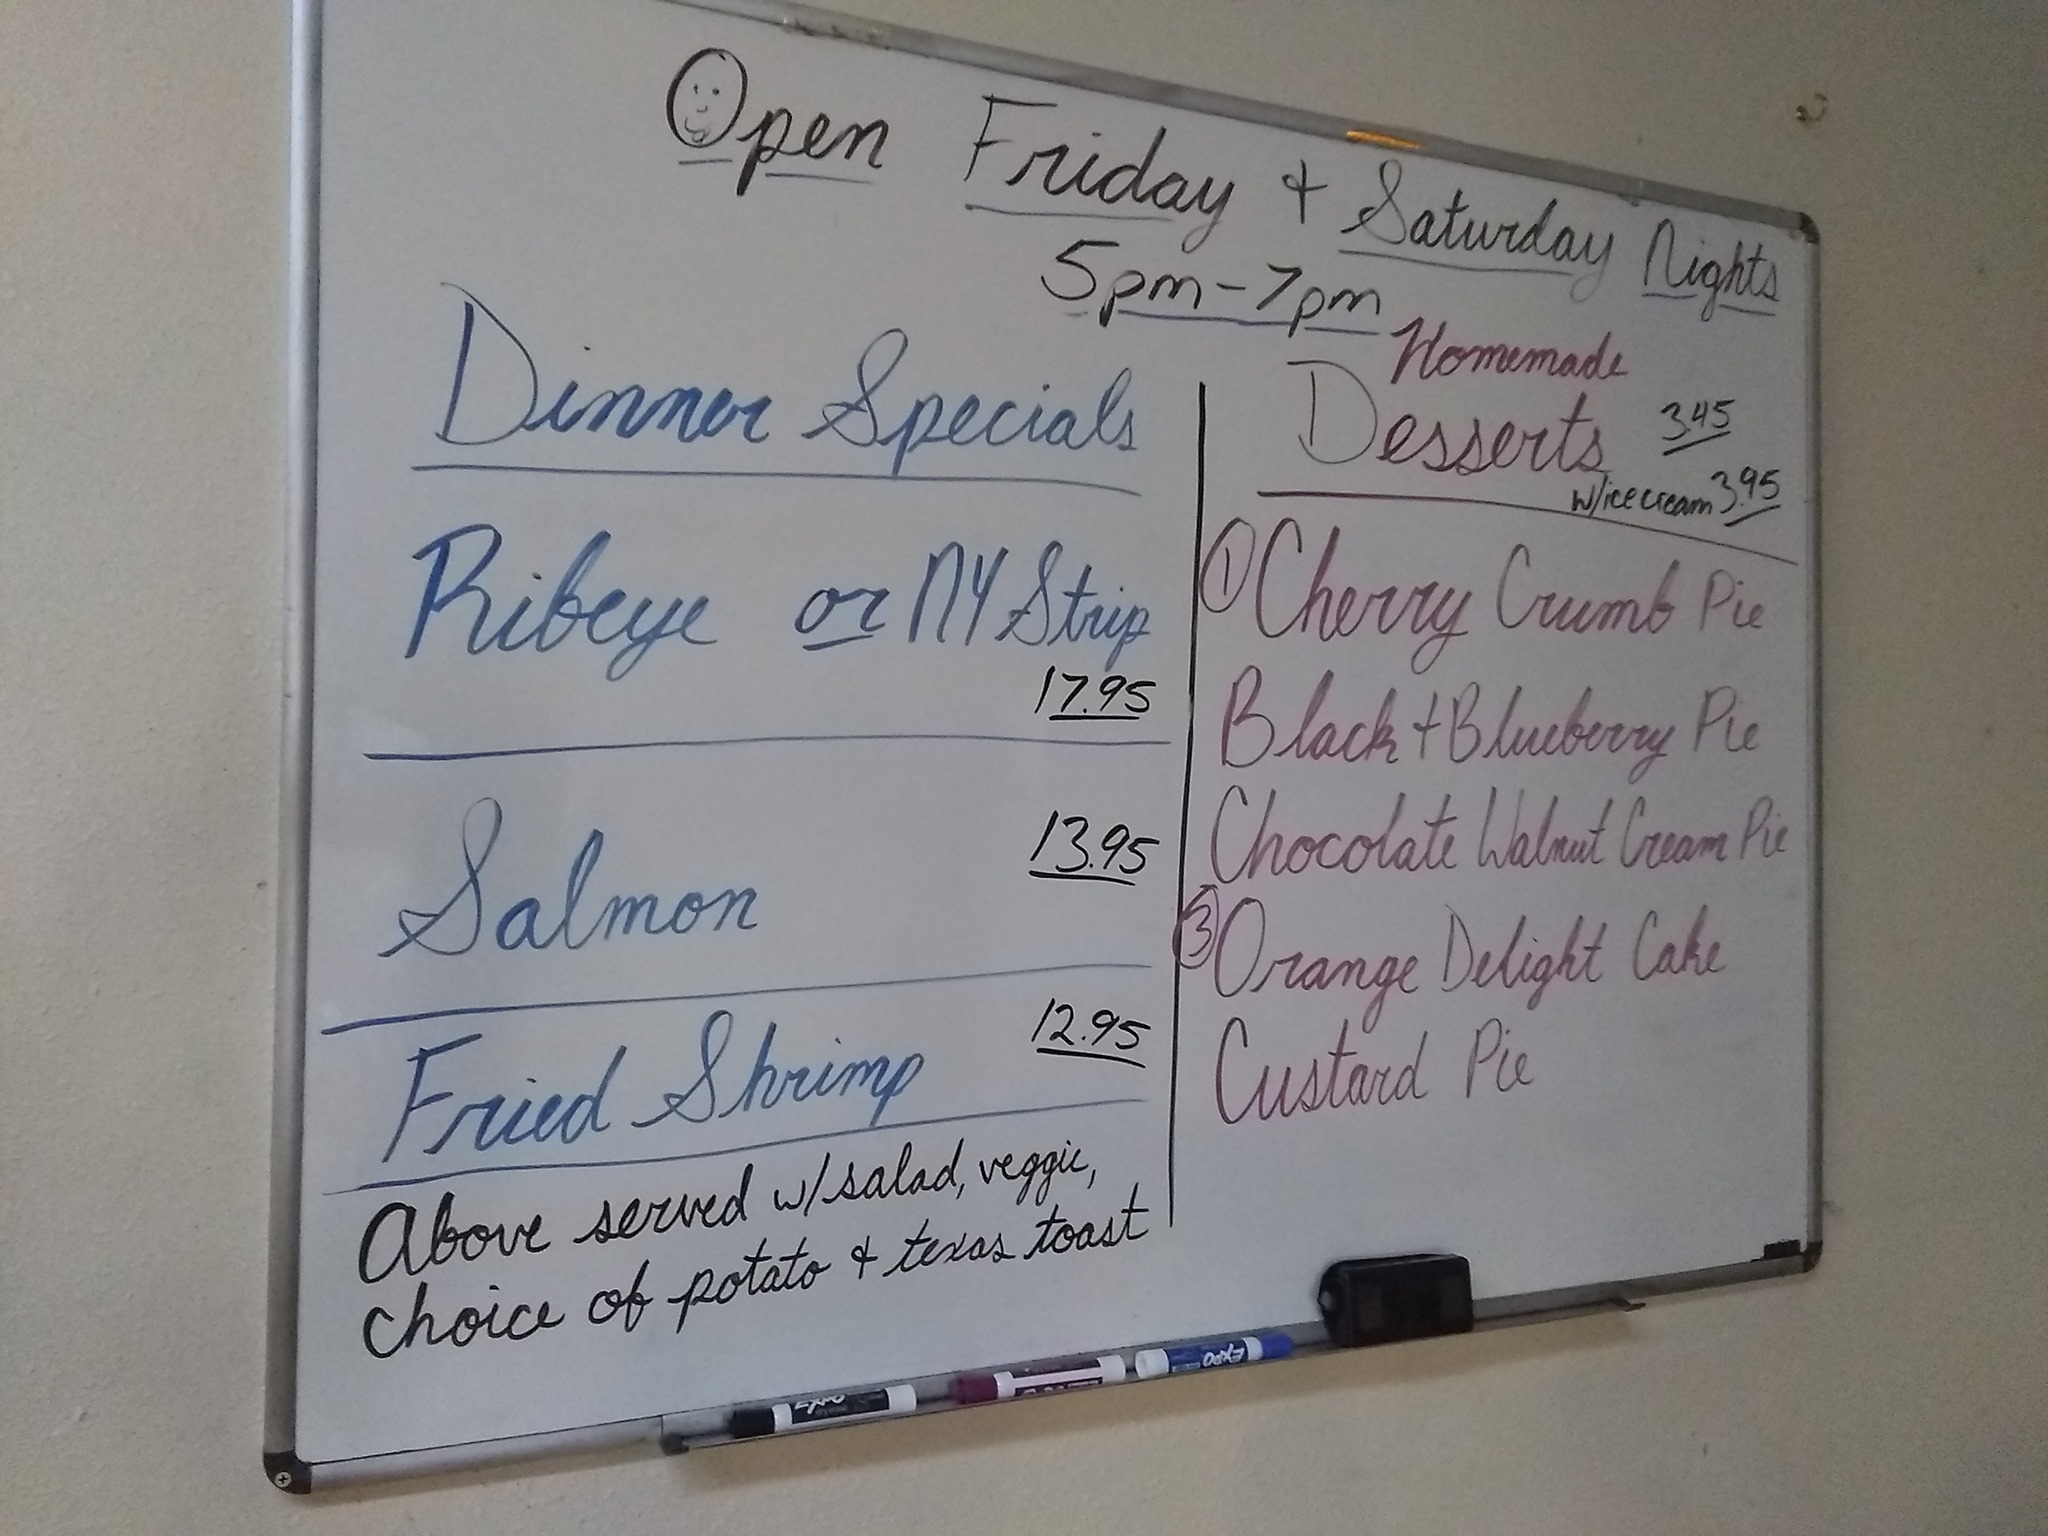 Open Friday + Saturday Nights
5pm-7pm
Dinner Specials
Ribeye or NY Strip
17.95
Salmon 13.95
Fried Shrimp 12.95
Above served w/salad, veggie,
choice of potato + texas toast
Homemade
Desserts 3.45
w/ice cream 3.95
① Cherry Crumb Pie
Black + Blueberry Pie
Chocolate Walnut Cream Pie
③ Orange Delight Cake
Custard Pie
EXPO
EXPO